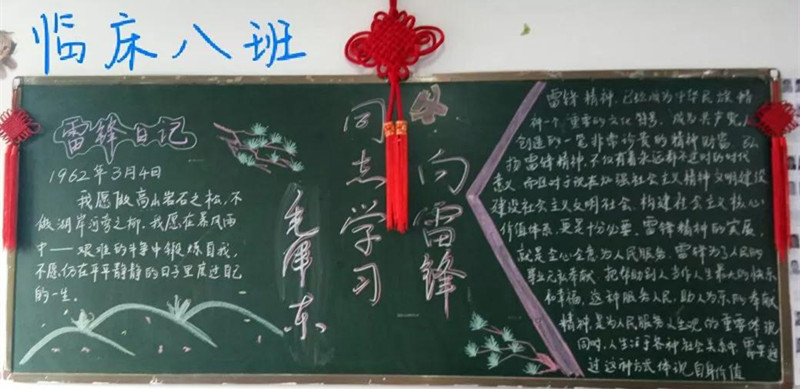 临床八班
雷锋日记
1962年3月4日
我愿做高山岩石之松,不
做湖岸河旁之柳。我愿在暴风雨
中——艰难的斗争中锻炼自我,
不愿仍在平平静静的日子里度过自己
的一生。
向雷锋
同志学习
毛泽东
雷锋精神,已经成为中华民族精
神一个重要的文化符号,成为共产党人
创造的一笔非常珍贵的精神财富。弘
扬雷锋精神,不仅有着永远都不过时的时代
意义,而且对于现在加强社会主义精神文明建设
建设社会主义文明社会,构建社会主义核心
价值体系,更是十分必要。雷锋精神的实质,
就是全心全意为人民服务,雷锋为了人民的
事业无私奉献,把帮助别人当作人生最大的快乐
和幸福,这种服务人民,助人为乐的奉献
精神,是为人民服务人生观的重要体现
同时,人生活于各种社会关系中,需要通
过这种方式体现自身价值